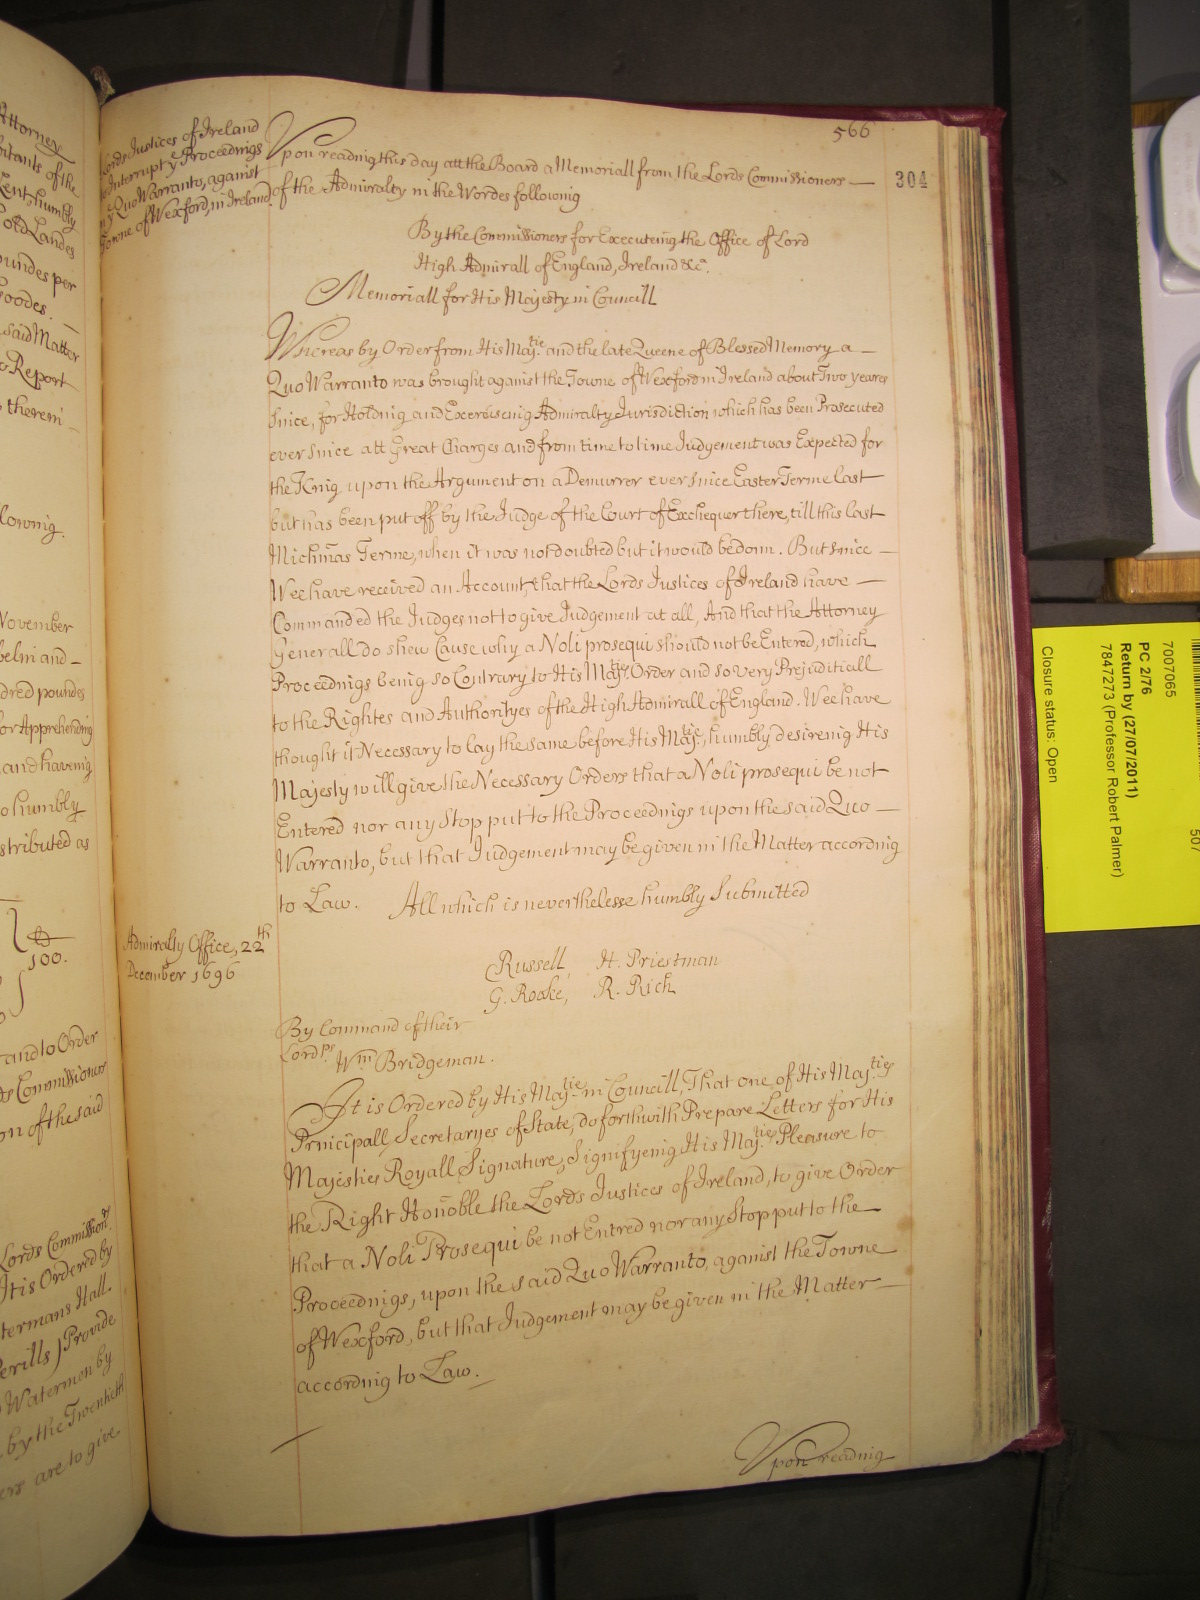 Attorney
bitants of the
Kent, humbly
old Landes
oundes per
Goodes.
said Matter
to Report
therein
llowing.
November
and
dred poundes
for Apprehending
and haveing
humbly
stributed as
100.
and to Order
Commissioners
on of the said
Lords Commission.rs
It is Ordered by
termans Hall.
Perills) Provide
Watermen by
by the Twentieth
ers are to give
566
304
Lords Justices of Ireland
to Interrupt ye Proceedings
Quo Warranto, against
Towne of Wexford, in Ireland.
Upon reading this day att the Board a Memoriall from the Lords Commissioners
of the Admiralty in the Wordes following
By the Commissioners for Executeing the Office of Lord
High Admirall of England, Ireland &ca.
Memoriall for His Majesty in Councill
Whereas by Order from His Maj.tie and the late Queene of Blessed Memory a
Quo Warranto was brought against the Towne of Wexford in Ireland about Two yeares
since, for Holding and Exerciseing Admiralty Jurisdiction which has been Prosecuted
ever since att Great Charges and from time to time Judgement was Expected for
the King upon the Argument on a Demurrer ever since Easter Terme last
but has been put off by the Judge of the Court of Exchequer there, till this last
Michmas Terme, when it was not doubted but it would be donn. But since
Wee have received an Account, that the Lords Justices of Ireland have
Commanded the Judges not to give Judgement at all, And that the Attorney
Generall do shew Cause why a Noli prosequi should not be Entered, which
Proceedings being so Contrary to His Maj.ties Order and so very Prejuditiall
to the Rightes and Authorityes of the High Admirall of England. Wee have
thought it Necessary to lay the same before His Maj.tie, humbly desireing His
Majesty will give the Necessary Orders that a Noli prosequi be not
Entered nor any Stop put to the Proceedings upon the said Quo
Warranto, but that Judgement may be given in the Matter according
to Law. All which is neverthelesse humbly Submitted
Admiralty Office, 22th
December 1696
Russell, H. Priestman
G. Rooke, R. Rich
By Command of their
Lord.ps
Wm Bridgeman.
It is Ordered by His Maj.tie in Councill, That one of His Maj.ties
Principall Secretaryes of State, do forthwith Prepare Letters for His
Majesties Royall Signature, Signifyeing His Maj.ties Pleasure to
the Right Honoble the Lords Justices of Ireland, to give Order
that a Noli Prosequi be not Entred nor any Stop put to the
Proceedings, upon the said Quo Warranto, against the Towne
of Wexford, but that Judgement may be given in the Matter
according to Law.
Upon reading
7007065
507
PC 2/76
Return by (27/07/2011)
7847273 (Professor Robert Palmer)
Closure status: Open